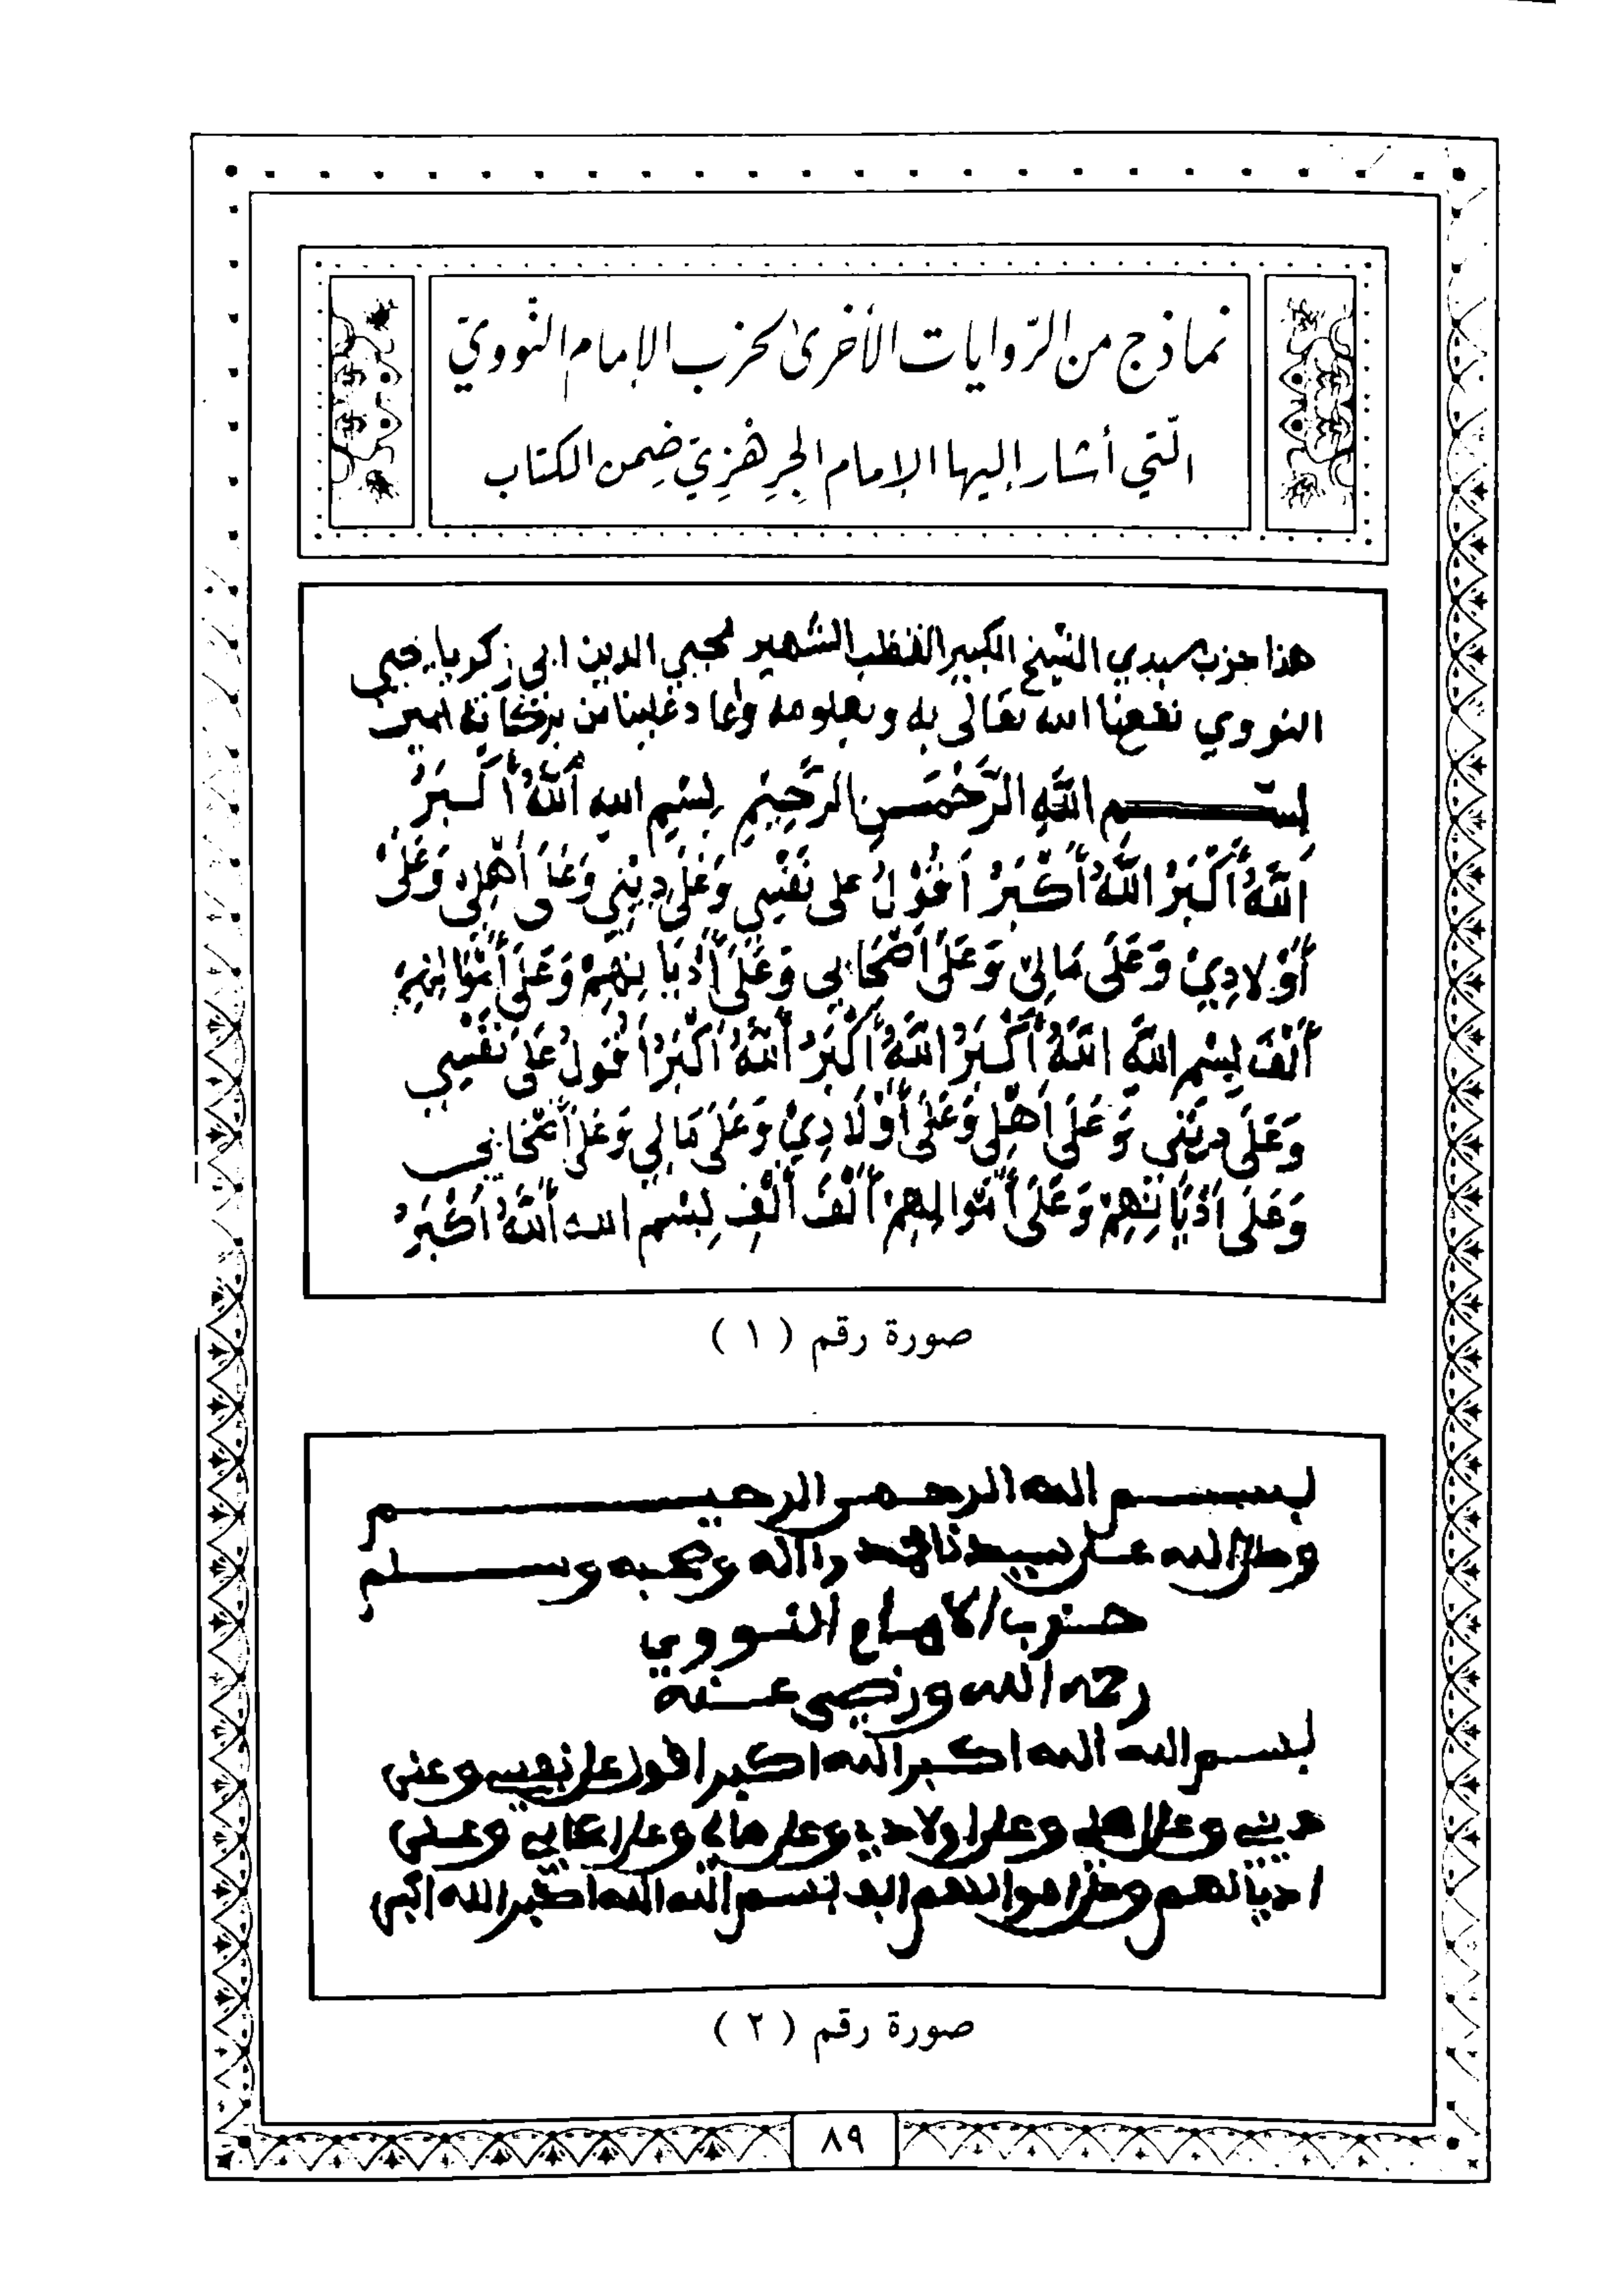 نماذج من الرّوايات الأخرىٰ لحزب الإمام النّوويّ
الّتي أشار إليها الإمام الجِرهْزِيّ ضِمن الكتاب
هذا حزب سيدي الشيخ الكبير القطب الشهير محيي الدين ابي زكريا يحيى
النووي نفعنا الله تعالى به وبعلومه واعاد علينا من بركاته امين
بسم اللَّهِ الرَّحْمَنِ الرَّحِيمِ بِسْمِ اللهِ أَللَّهُ أَكْبَرُ
اَللَّهُ أَكْبَرُ اللَّهُ أَكْبَرُ اَقُوْلُ على نَفْسِي وَعَلَى دِيْنِي وَعَلَى أَهْلِي وَعَلَى
أَوْلادِيْ وَعَلَى مَالِيْ وَعَلَى اَصْحَابِي وَعَلَى أَدْيَانِهِمْ وَعَلَى أَمْوَالِهِمْ
أَلْفَ بِسْمِ اللَّهِ اللَّهُ أَكْبَرُ اللَّهُ أَكْبَرُ أَللَّهُ اَكْبَرُ اَقُولُ عَلَى نَفْسِي
وَعَلَى دِيْنِي وَعَلَى اَهْلِي وَعَلَى أَوْلَادِيْ وَعَلَى مَالِي وَعَلَى أَصْحَابِي
وَعَلَى اَدْيَانِهِمْ وَعَلَى أَمْوالِهِمْ أَلْفَ أَلْفِ بِسْمِ الله أَللَّهُ اَكْبَرُ
صورة رقم ( ١ )
بسم الله الرحمن الرحيم
وصلى الله على سيدنا محمد وآله وصحبه وسلم
حزب الامام النووي
رحمه الله ورضي عنه
بسم الله الله اكبر الله اكبر اقول على نفسي وعلى
ديني وعلى اهلي وعلى اولادي وعلى مالي وعلى اصحابي وعلى
اديانهم وعلى اموالهم الف بسم الله الله اكبر الله اكبر
صورة رقم ( ٢ )
٨٩